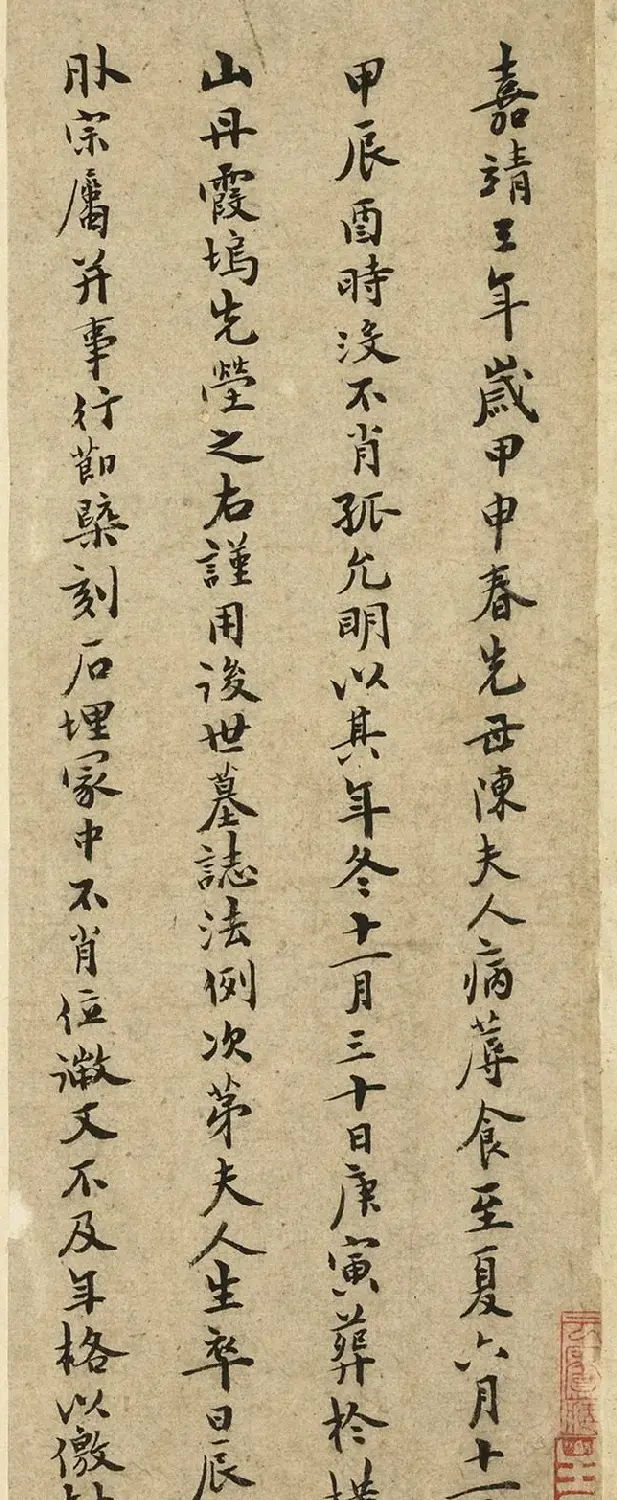 嘉靖三年歲甲申春先母陳夫人病蓐食至夏六月十一
甲辰酉時沒不肖孤允明以其年冬十一月三十日庚寅葬於橫
山丹霞塢先塋之右謹用後世墓誌法例次第夫人生卒日辰
肤宗屬并事行節槩刻石埋冢中不肖位澉文不及年格以徼